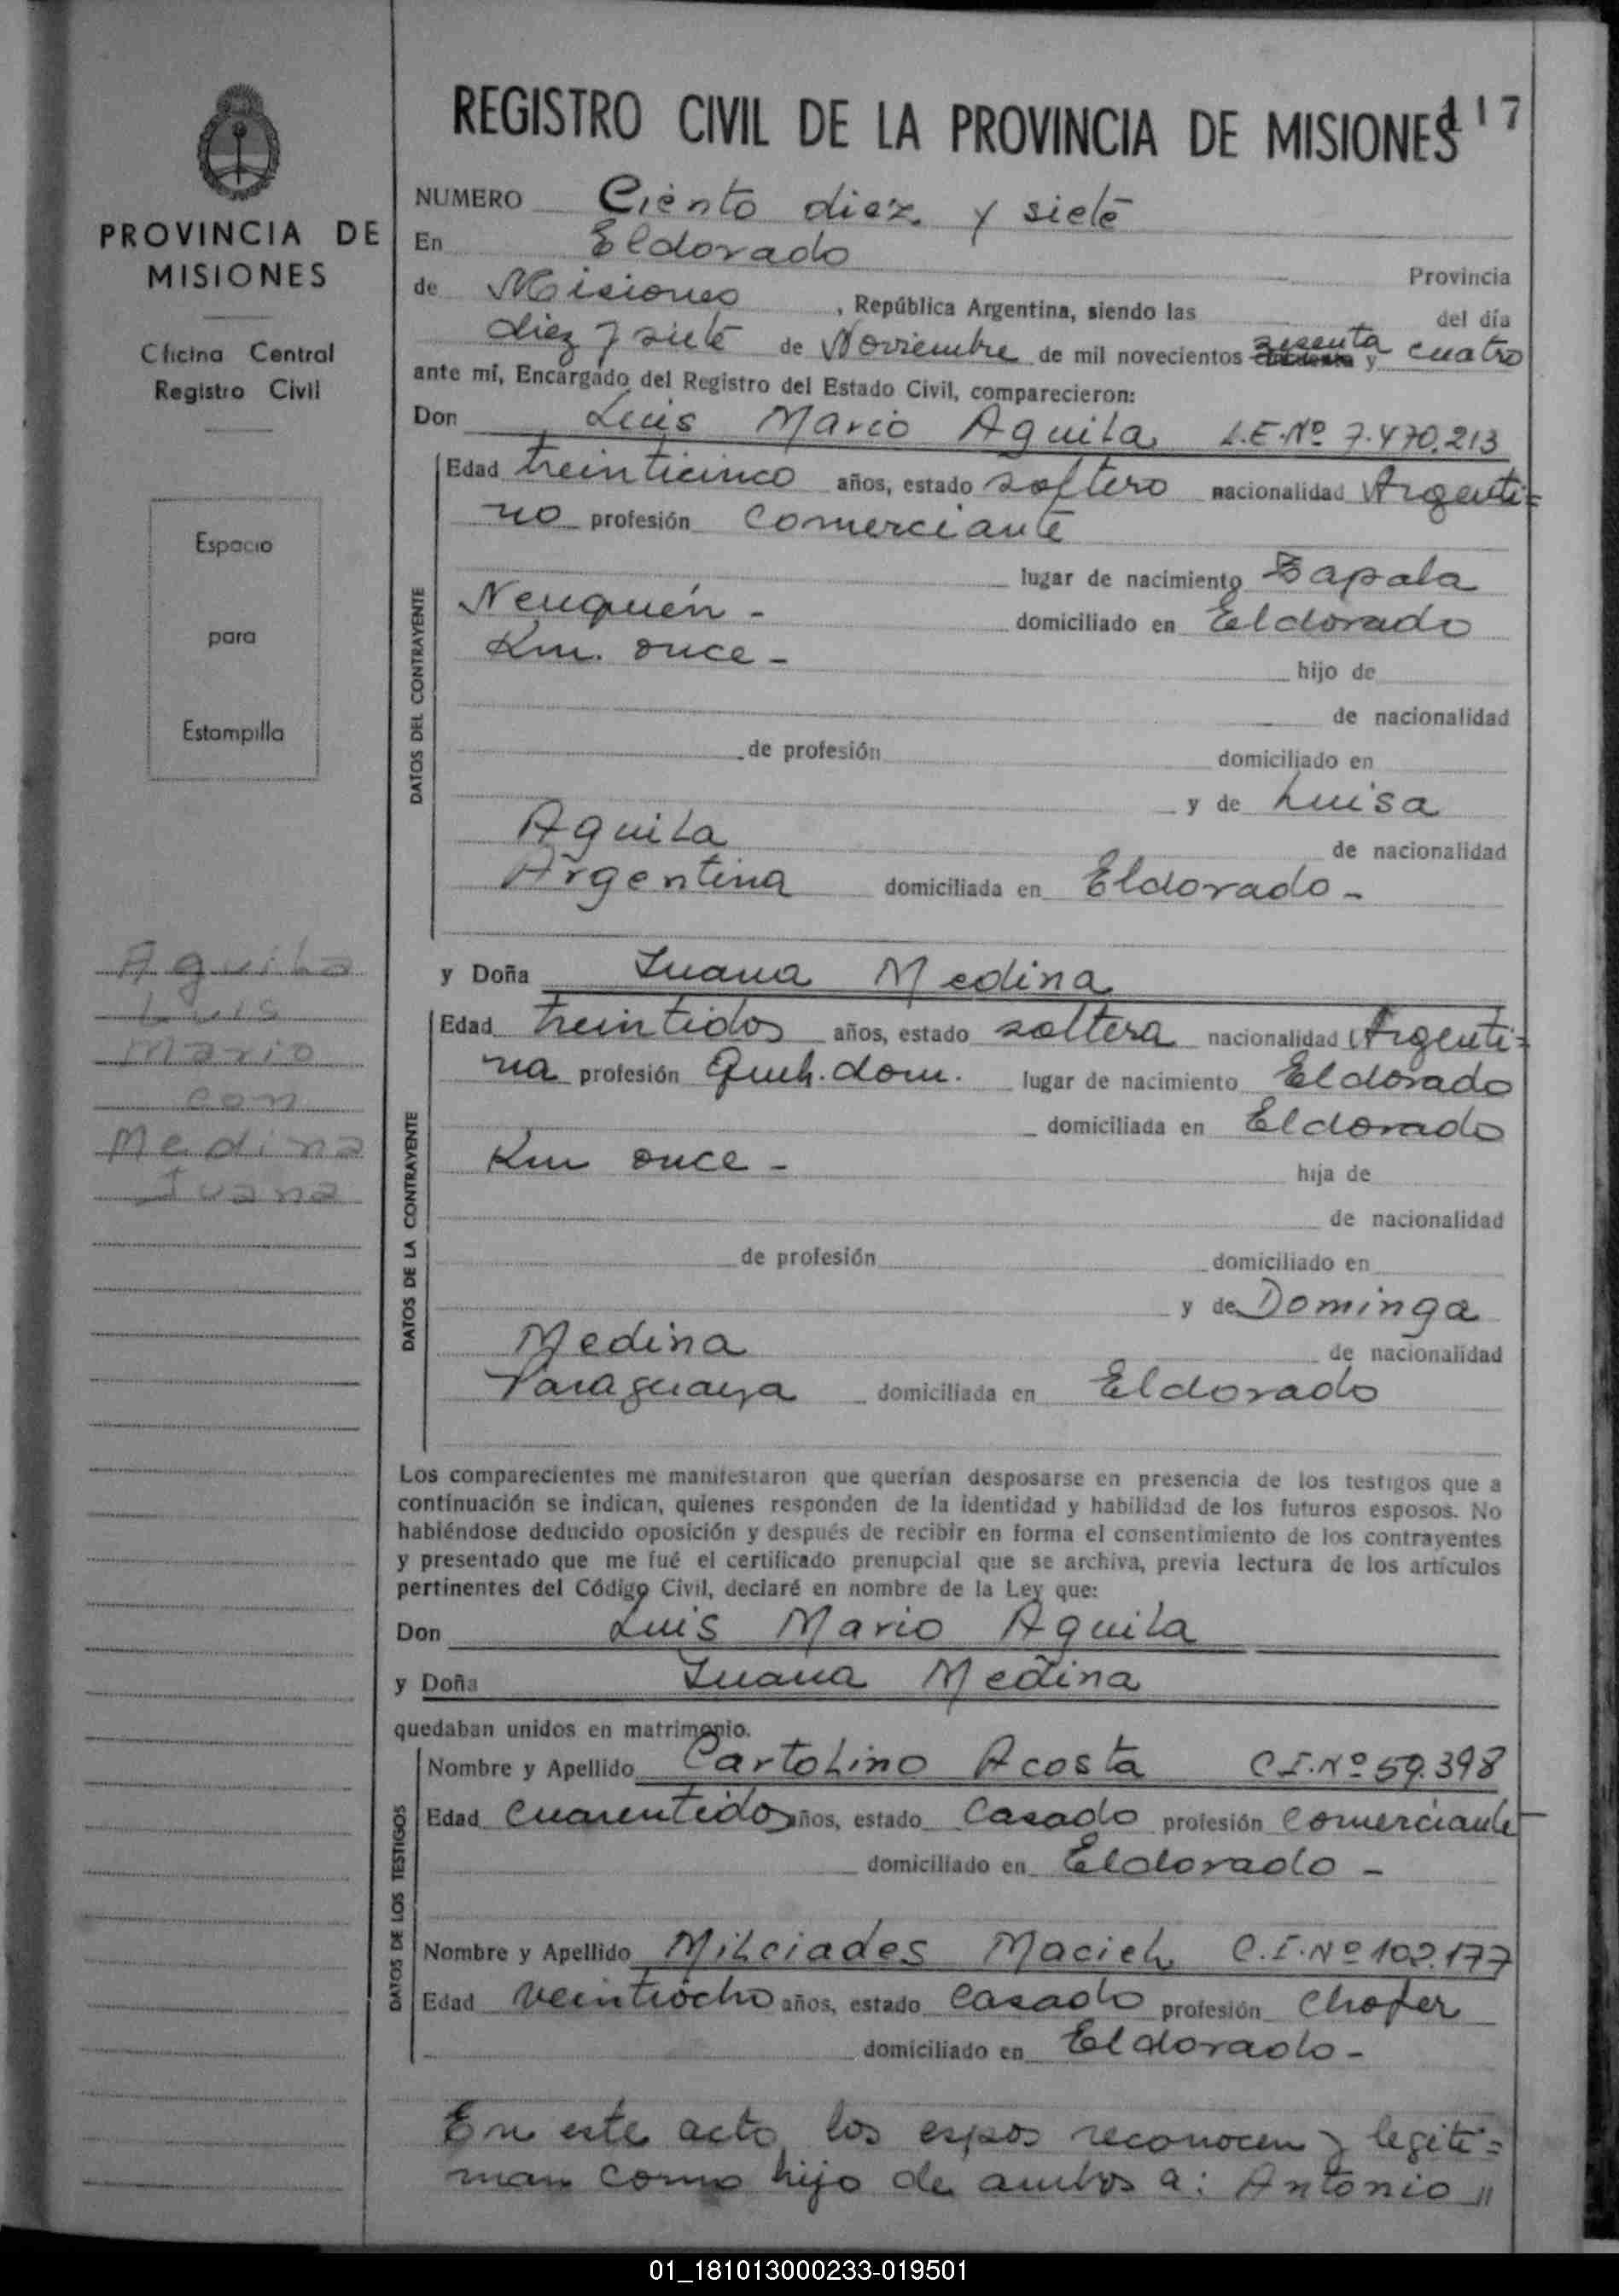 REGISTRO CIVIL DE LA PROVINCIA DE MISIONES 117
PROVINCIA DE
MISIONES
Oficina Central
Registro Civil
Espacio
para
Estampilla
Aguila
Luis
Mario
con
Medina
Juana
NUMERO Ciento diez y siete
En Eldorado Provincia
de Misiones, República Argentina, siendo las del día
diez y siete de Noviembre de mil novecientos sesenta y cuatro
ante mí, Encargado del Registro del Estado Civil, comparecieron:
Don Luis Mario Aguila L.E.Nº 7.470.213
DATOS DEL CONTRAYENTE
Edad treinticinco años, estado soltero nacionalidad Argenti=
no profesión Comerciante
lugar de nacimiento Zapala
Neuquén - domiciliado en Eldorado
Km. once - hijo de
de nacionalidad
de profesión domiciliado en
y de Luisa
Aguila de nacionalidad
Argentina domiciliada en Eldorado -
y Doña Juana Medina
DATOS DE LA CONTRAYENTE
Edad treintidos años, estado soltera nacionalidad Argenti=
na profesión Queh. dom. lugar de nacimiento Eldorado
domiciliada en Eldorado
Km once - hija de
de nacionalidad
de profesión domiciliado en
y de Dominga
Medina de nacionalidad
Paraguaya domiciliada en Eldorado
Los comparecientes me manifestaron que querían desposarse en presencia de los testigos que a
continuación se indican, quienes responden de la identidad y habilidad de los futuros esposos. No
habiéndose deducido oposición y después de recibir en forma el consentimiento de los contrayentes
y presentado que me fué el certificado prenupcial que se archiva, previa lectura de los artículos
pertinentes del Código Civil, declaré en nombre de la Ley que:
Don Luis Mario Aguila
y Doña Juana Medina
quedaban unidos en matrimonio.
DATOS DE LOS TESTIGOS
Nombre y Apellido Cartolino Acosta C.I.Nº 59.398
Edad Cuarentidos años, estado Casado profesión Comerciante
domiciliado en Eldorado -
Nombre y Apellido Milciades Maciel C.I.Nº 102.177
Edad veintiocho años, estado Casado profesión Chofer
domiciliado en Eldorado -
En este acto, los espos reconocen y legiti=
man como hijo de ambos a: Antonio "
01_181013000233-019501